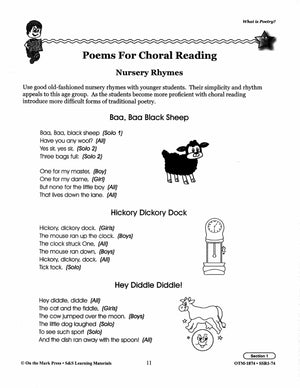 What is Poetry?
Poems For Choral Reading
Nursery Rhymes
Use good old-fashioned nursery rhymes with younger students. Their simplicity and rhythm
appeals to this age group. As the students become more proficient with choral reading
introduce more difficult forms of traditional poetry.
Baa, Baa Black Sheep
Baa, Baa, black sheep (Solo 1)
Have you any wool? (All)
Yes sir, yes sir, (Solo 2)
Three bags full: (Solo 2)
One for my master, (Boy)
One for my dame, (Girl)
But none for the little boy (All)
That lives down the lane. (All)
Hickory Dickory Dock
Hickory, dickory, dock. (Girls)
The mouse ran up the clock. (Boys)
The clock struck One, (All)
The mouse ran down, (Boys)
Hickory, dickory, dock, (All)
Tick tock. (Solo)
Hey Diddle Diddle!
Hey diddle, diddle (All)
The cat and the fiddle, (Girls)
The cow jumped over the moon. (Boys)
The little dog laughed (Solo)
To see such sport (Solo)
And the dish ran away with the spoon! (All)
Section 1
© On the Mark Press • S&S Learning Materials
11
OTM-1874 • SSR1-74